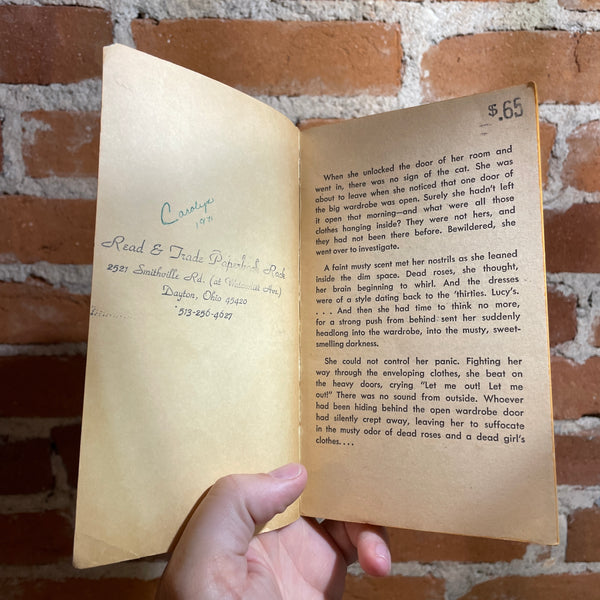 Carolyn
1971
Read & Trade Paperback Rack
2521 Smithville Rd. (at Watervliet Ave)
Dayton, Ohio 45420
513-256-4627
$.65
When she unlocked the door of her room and
went in, there was no sign of the cat. She was
about to leave when she noticed that one door of
the big wardrobe was open. Surely she hadn't left
it open that morning—and what were all those
clothes hanging inside? They were not hers, and
they had not been there before. Bewildered, she
went over to investigate.
A faint musty scent met her nostrils as she leaned
inside the dim space. Dead roses, she thought,
her brain beginning to whirl. And the dresses
were of a style dating back to the 'thirties. Lucy's.
. . . . And then she had time to think no more,
for a strong push from behind sent her suddenly
headlong into the wardrobe, into the musty, sweet-
smelling darkness.
She could not control her panic. Fighting her
way through the enveloping clothes, she beat on
the heavy doors, crying "Let me out! Let me
out!" There was no sound from outside. Whoever
had been hiding behind the open wardrobe door
had silently crept away, leaving her to suffocate
in the musty odor of dead roses and a dead girl's
clothes. . . .